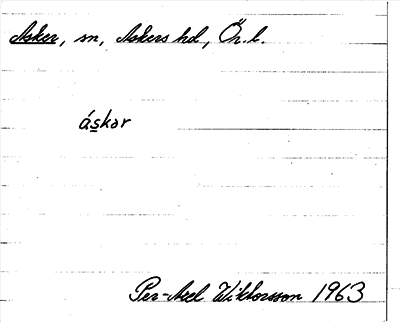 Asker, sn, Askers hd, Ör. l.
áskər
Per-Axel Wiktorsson 1963